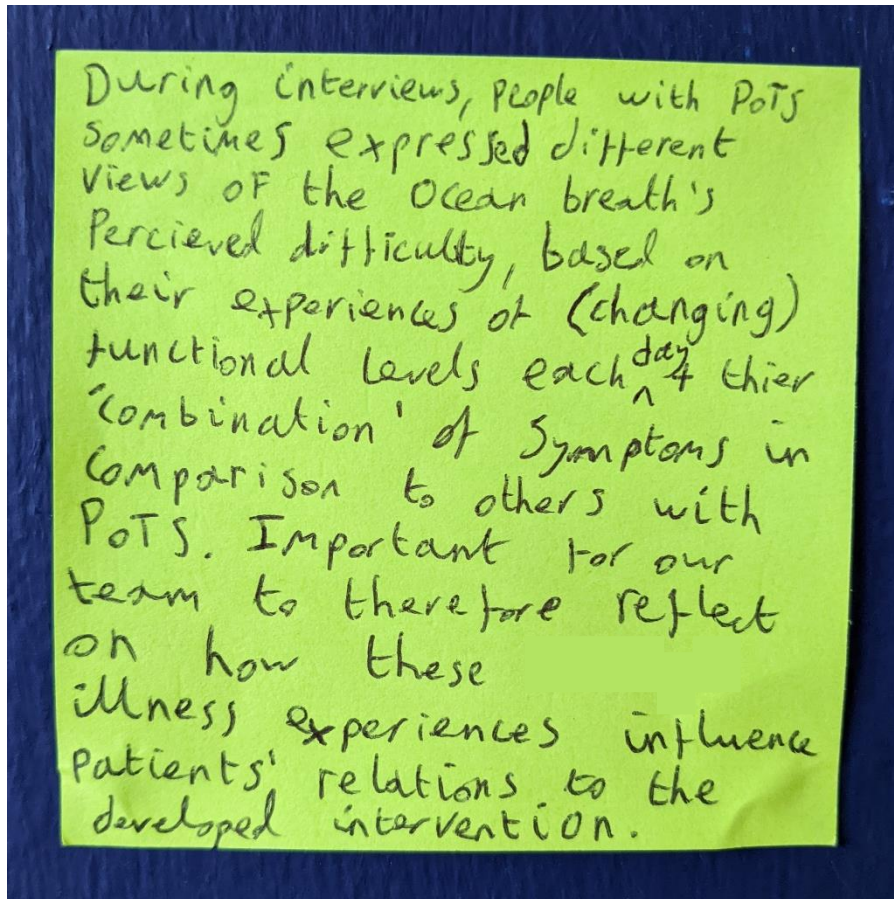 During interviews, people with PoTS
sometimes expressed different
views of the Ocean breath's
Percieved difficulty, based on
their experiences of (changing)
functional levels each day & thier
'combination' of symptoms in
comparison to others with
PoTS. Important for our
team to therefore reflect
on how these
illness experiences influence
patients' relations to the
developed intervention.